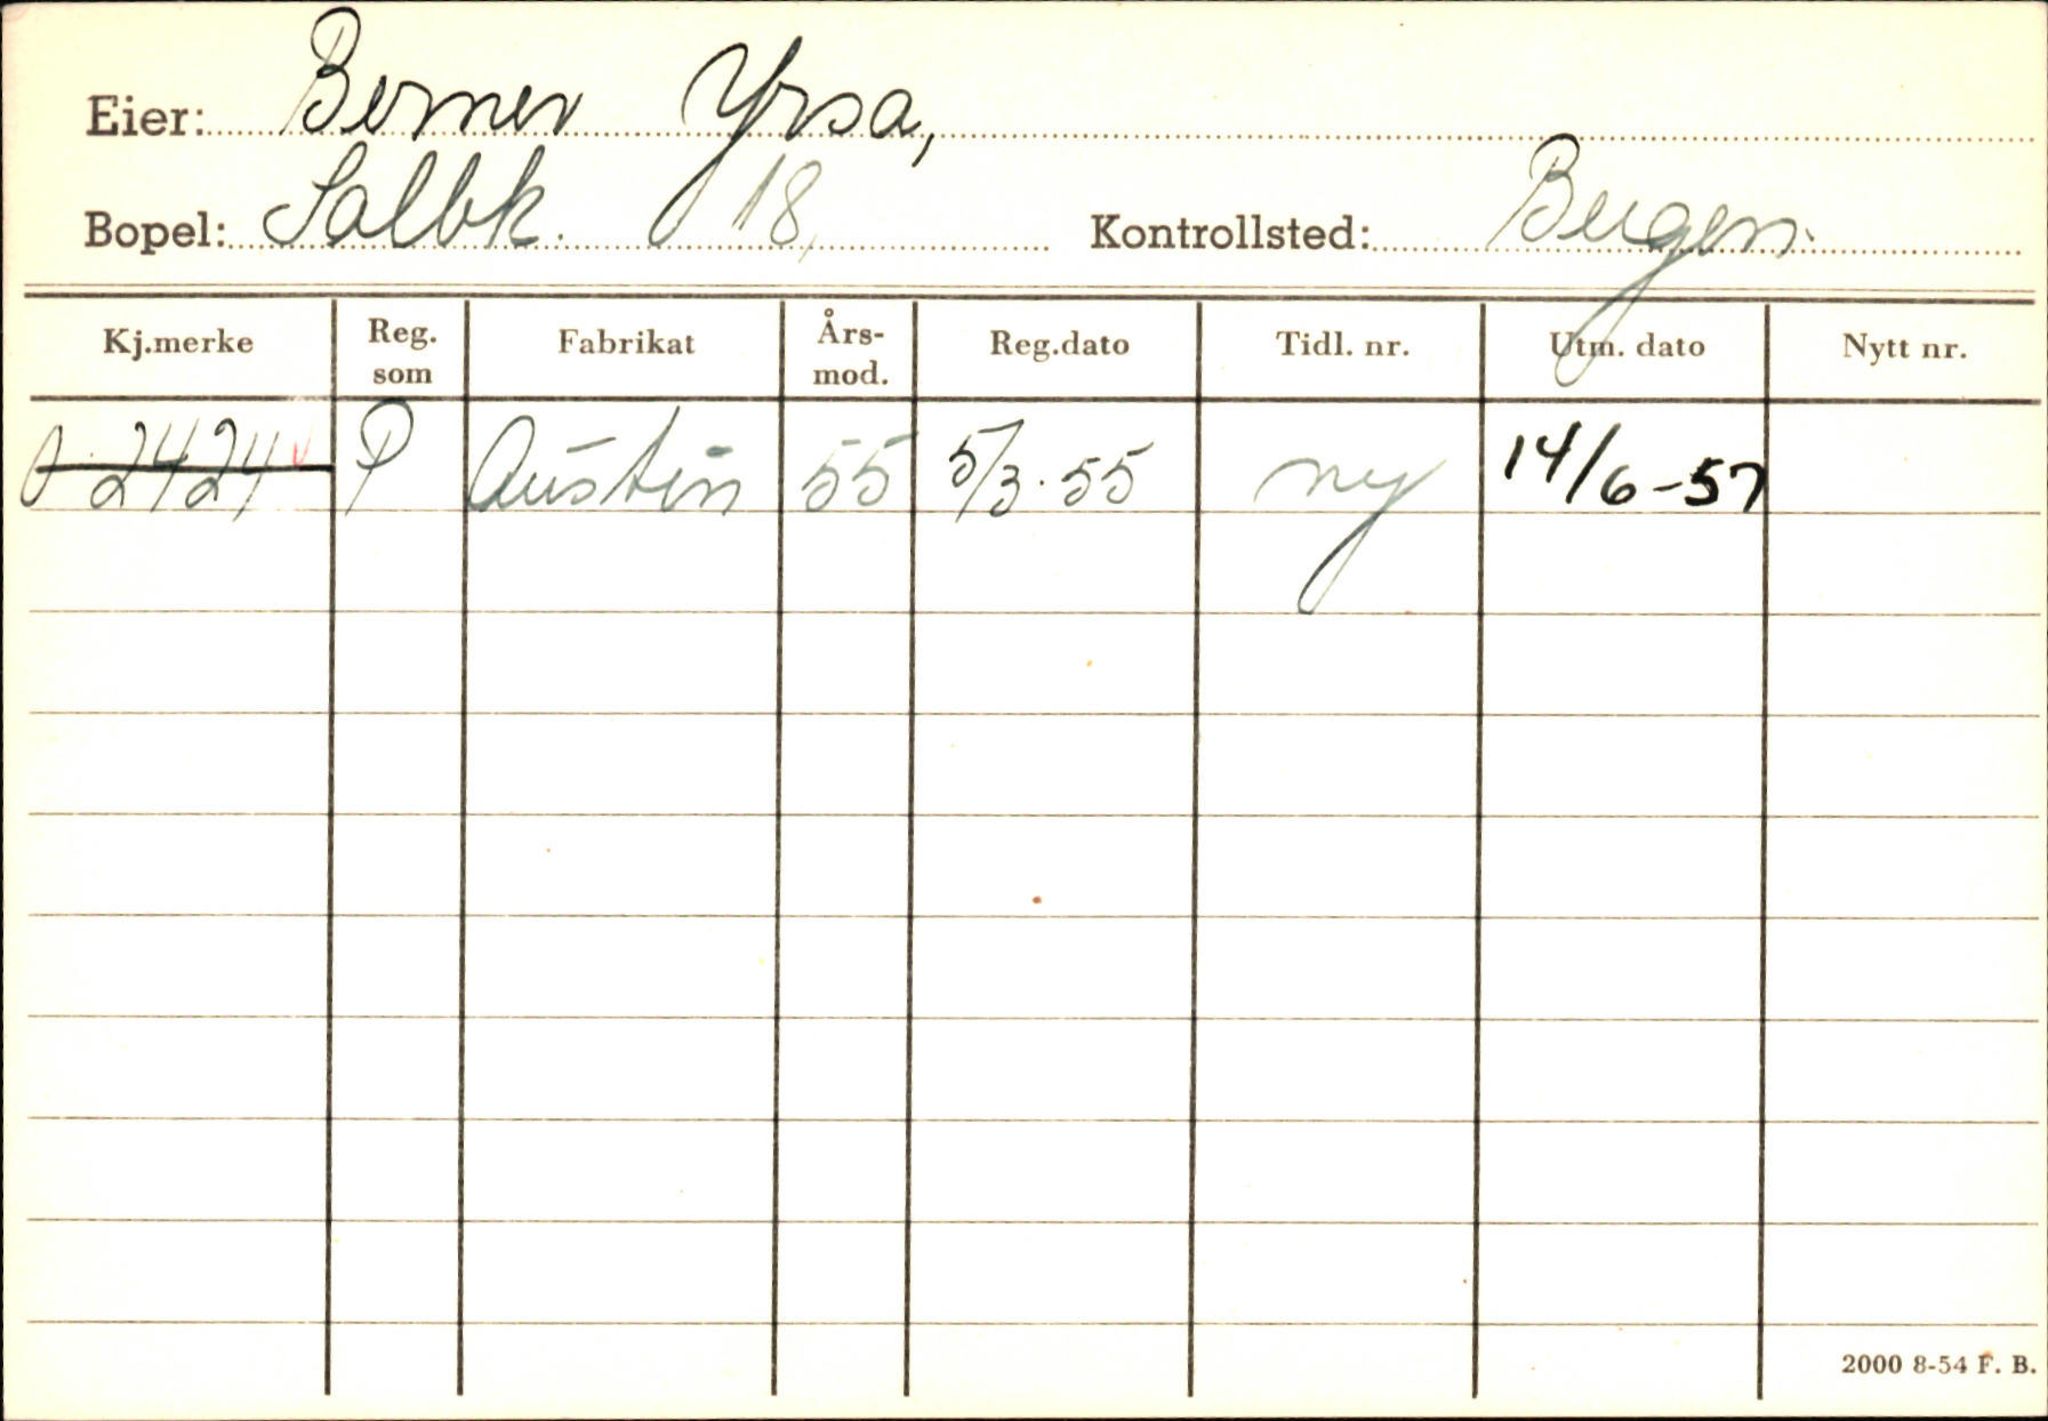 Eier: Berner Yrsa,
Bopel: Salbk. 18, Kontrollsted: Bergen.
Kj.merke Reg. som Fabrikat Års-mod. Reg.dato Tidl. nr. Utm. dato Nytt nr.
O-2424 P Austin 55 5/3.55 ny 14/6-57
2000 8-54 F. B.